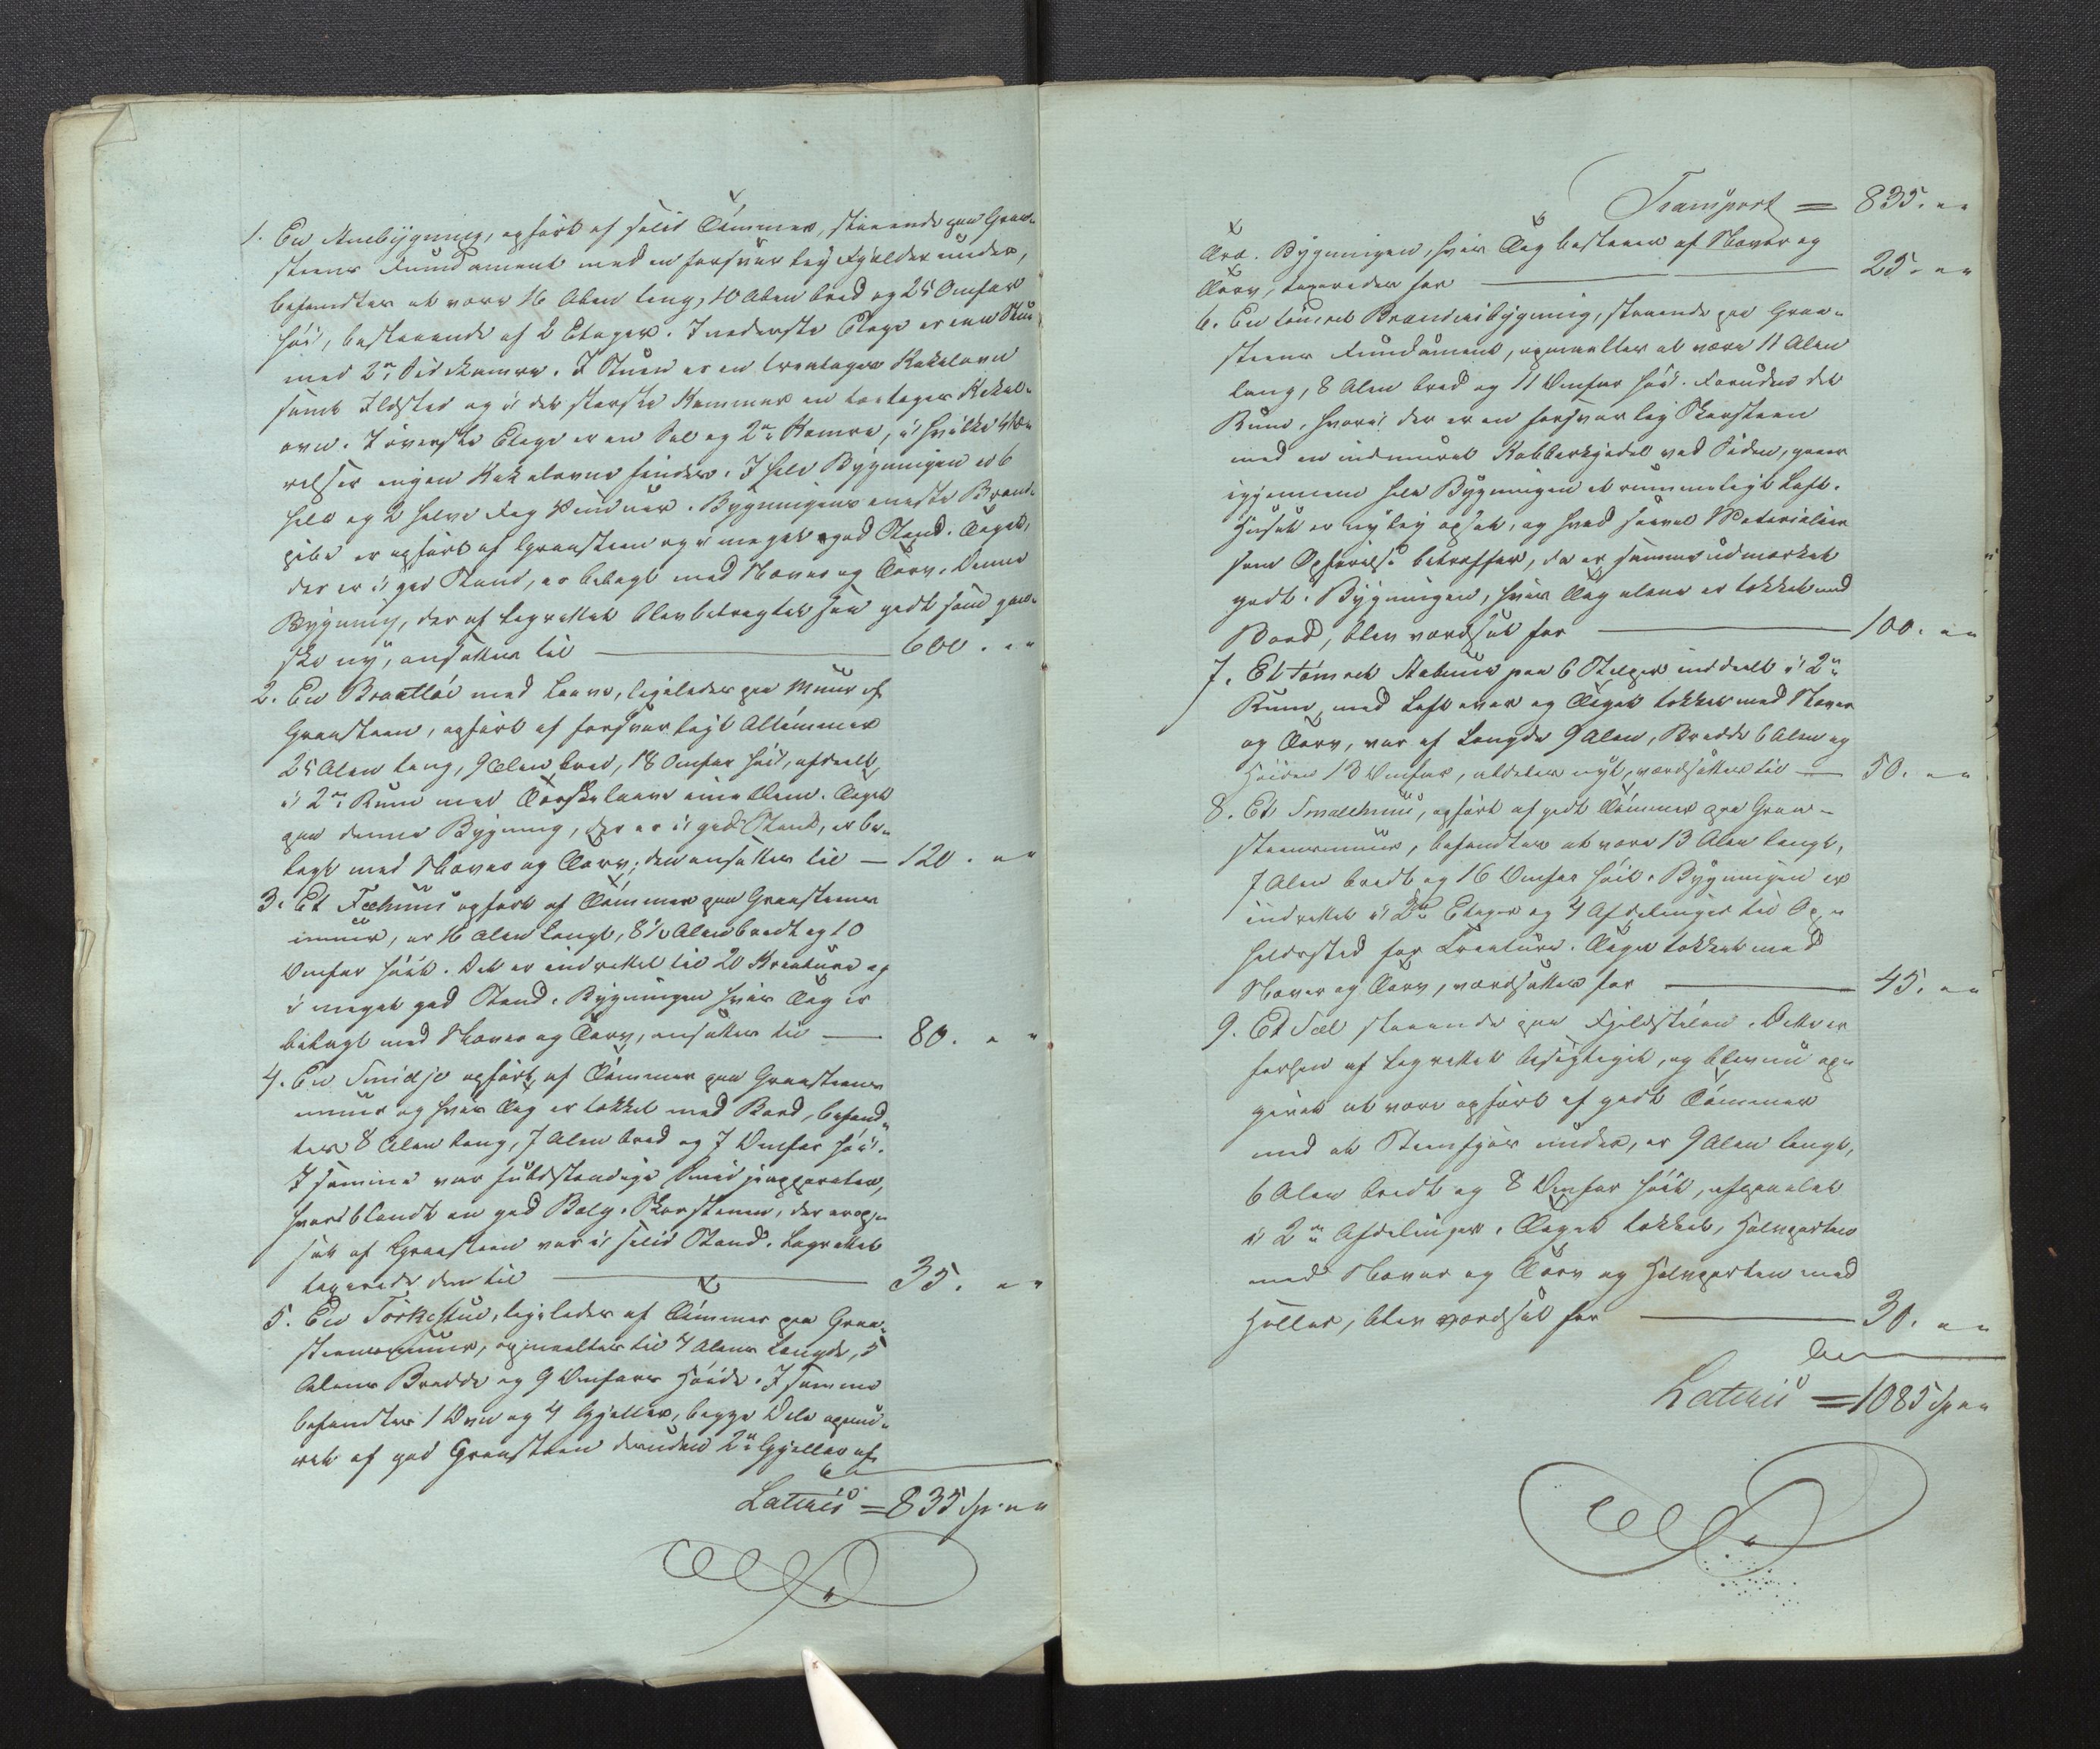 1. En Stuebygning, opført af solid Tømmer, staaende paa Graa-
steens Fundament med en forsvarlig Kjelder under,
befandtes at være 16 Alen lang, 10 Alen bred og 25 Omfar
høi, bestaaende af 2 Etager. I nederste Etage er een Stue
med 2de Sidekamre. I Stuen er en treetages Kakelovn
samt Ildsted og i det største Kammer en toetages Kakel-
ovn. I øverste Etage er en Sal og 2de Kamre, i hvilke Væ-
relser ingen Kakelovne findes. I hele Bygningen er 6
hele og 2 halve Fag Vinduer. Bygningens eneste Brand-
pibe er opført af Graasteen og i meget god Stand. Taget,
der er i god Stand, er belagt med Næver og Torv. Denne
Bygning, der af Lagrettet blev betragtet saa godt som gan-
ske ny, ansattes til 600. „ „
2. En med Laave, ligeledes paa Muur af
Graasteen, opført af forsvarligt Tømmer
25 Alen lang, 9 Alen bred, 18 Omfar høi, afdeelt
i 2de Rum med Tørskelaave imellem. Taget
paa denne Bygning, der er i god Stand, er be-
lagt med Næver og Torv; den ansattes til — 120. „ „
3. Et Fæhuus opført af Tømmer paa Graasteens
muur, er 16 Alen langt, 8½ Alen bredt og 10
Omfar høit. Det er indrettet til 20 Kreature og
i meget god Stand. Bygningen hvis Tag er
belagt med Næver og Torv, ansattes til — 80. „ „
4. En Smidje opført af Tømmer paa Graasteens
muur og hvis Tag er tækket med Bord, befand-
tes 8 Alen lang, 7 Alen bred og 7 Omfar høi.
I samme var fuldstændige Smidjeapparater,
hvoriblandt en god Bælg. Skorstenen, der er op-
sat af Graasteen var i solid Stand. Lagrettet
taxerede den til 35. „ „
5. En Tørkestue, ligeledes af Tømmer paa Graa-
steensmuur, opmaaltes til 7 Alens Længde, 5
Alens Bredde og 9 Omfars Høide. I samme
befandtes 1 Ovn og 4 Hjeller, begge Dele opmu-
ret af god Graasteen desuden 2de Hjeller af
Lateris = 835 Sp „ „
Transport = 835. „ „
Træ. Bygningen, hvis Tag bestaaer af Næver og
Torv, taxeredes for 25. „ „
6. En tømret Brændeibygning, staaende paa Graa-
steens Fundament, opmaaltes at være 11 Alen
lang, 8 Alen bred og 11 Omfar høi. Foruden det
Rum, hvori der er en forsvarlig Skorsteen
med en indmuret Kobberkjedel ved Siden, gaaer
igjennem hele Bygningen et rummeligt Loft.
Huset er nylig opsat, og hvad saavel Materialier
som Opførelse betræffer, da er samme udmærket
godt. Bygningen, hvis Tag alene er tækket med
Bord, blev værdsat for 100. „ „
7. Et tømret Stabuur paa 6 Stolper inddeelt i 2de
Rum, med Loft over og Taget tækket med Næver
og Torv, var af Længde 9 Alen, Bredde 6 Alen og
Høiden 13 Omfar, aldeles nyt, værdsattes til — 50. „ „
8. Et Smalehuus, opført af godt Tømmer paa Graa-
steensmuur, befandtes at være 13 Alen langt,
7 Alen bredt og 16 Omfar høit. Bygningen er
indrettet i 2de Etager og 4 Afdelinger til Op-
holdssted for Creature. Taget tækket med
Næver og Torv, værdsattes for 45. „ „
9. Et Sæl staaende paa Fjeldstølen. Dette er
forhen af Lagrettet besigtiget, og blev nu op-
givet at være opført af godt Tømmer
med et Steenfjøs under, er 9 Alen langt,
6 Alen bredt og 8 Omfar høit, afpanelet
i 2de Afdelinger. Taget tækket, Halvparten
med Næver og Torv og Halvparten med
Heller, blev værdsat for 30. „ „
Lateris = 1085 Sp „ „